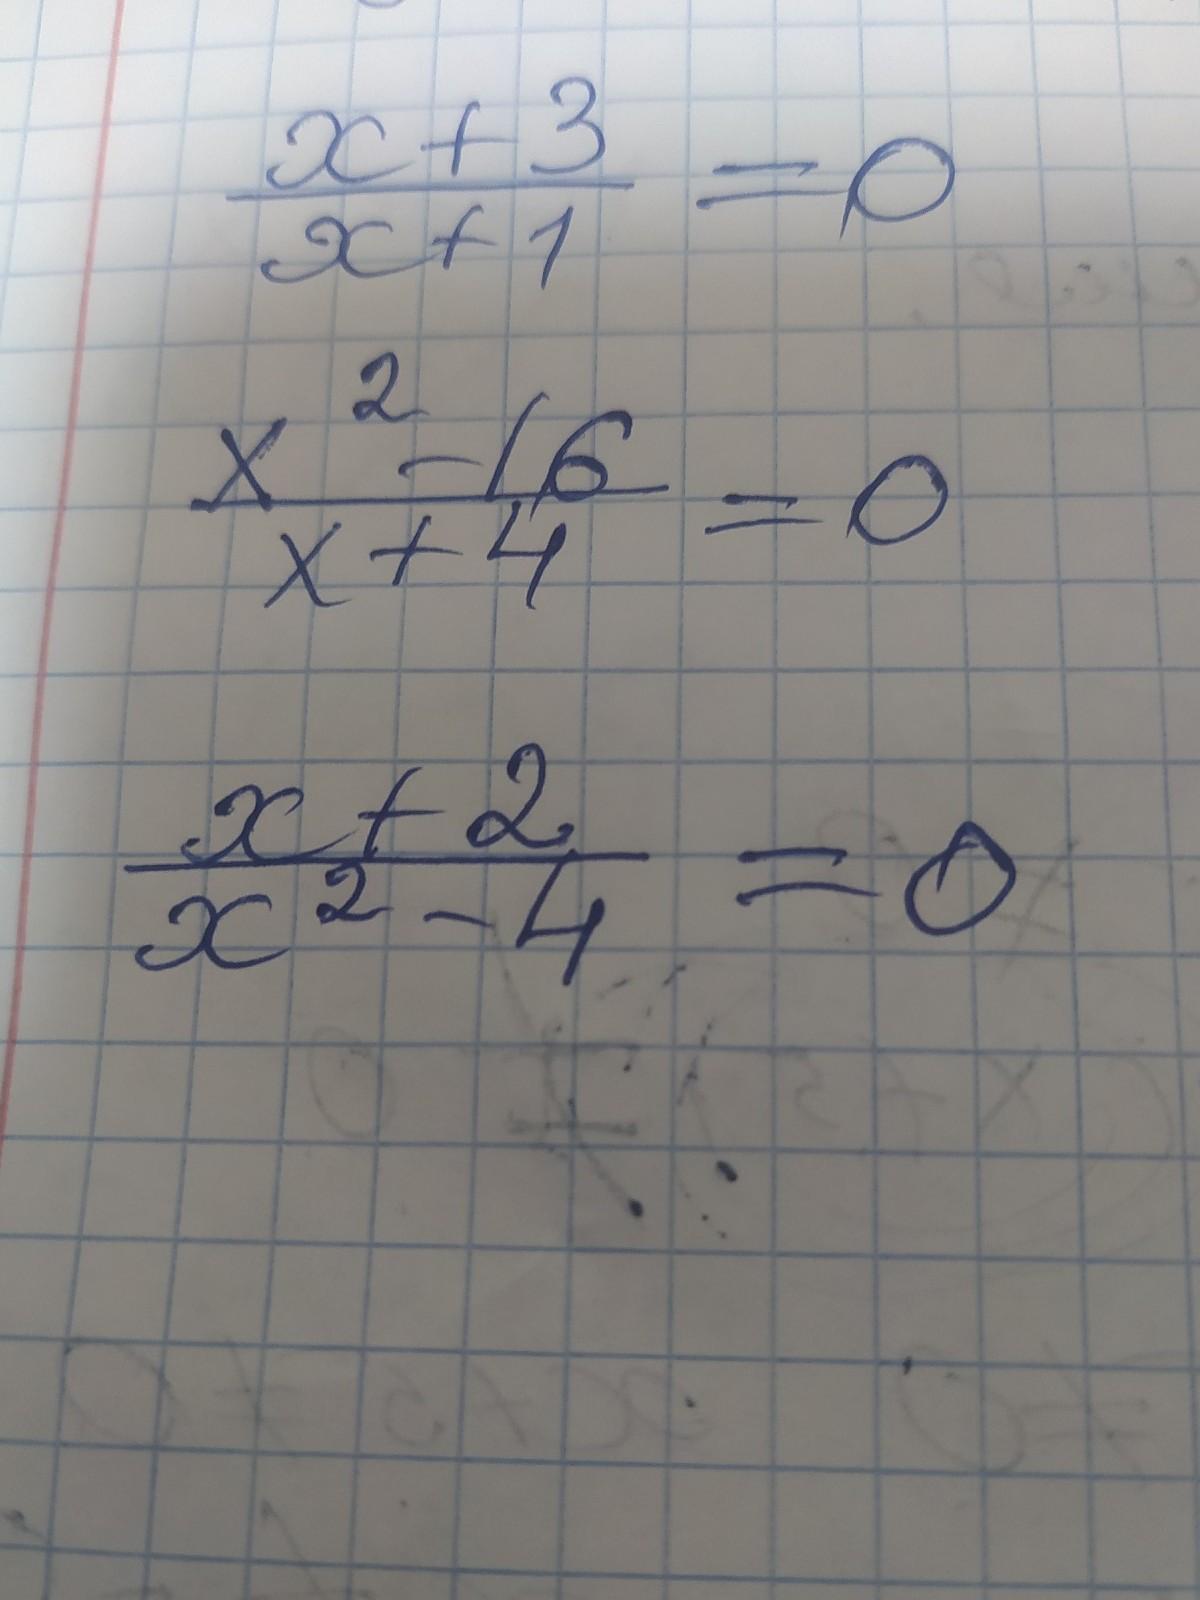 x + 3
x + 1
= 0
x² - 16
x + 4
= 0
x + 2
x² - 4
= 0